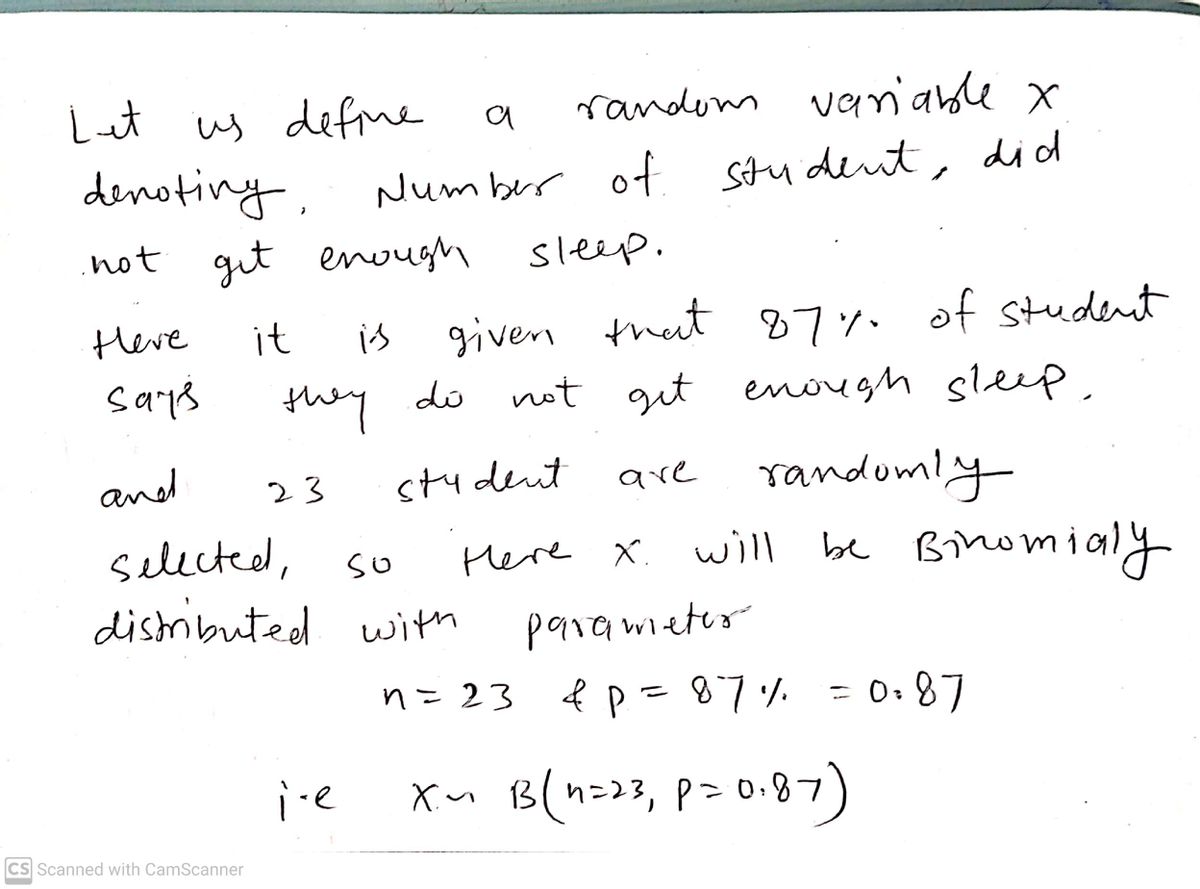 Let us define a random variable X
denoting, Number of student, did
not get enough sleep.
Here it is given that 87% of student
says they do not get enough sleep,
and 23 student are randomly
selected, so Here X will be Binomialy
distributed with parameter
n = 23 & p = 87% = 0.87
i.e X ~ B(n=23, p=0.87)
CS Scanned with CamScanner